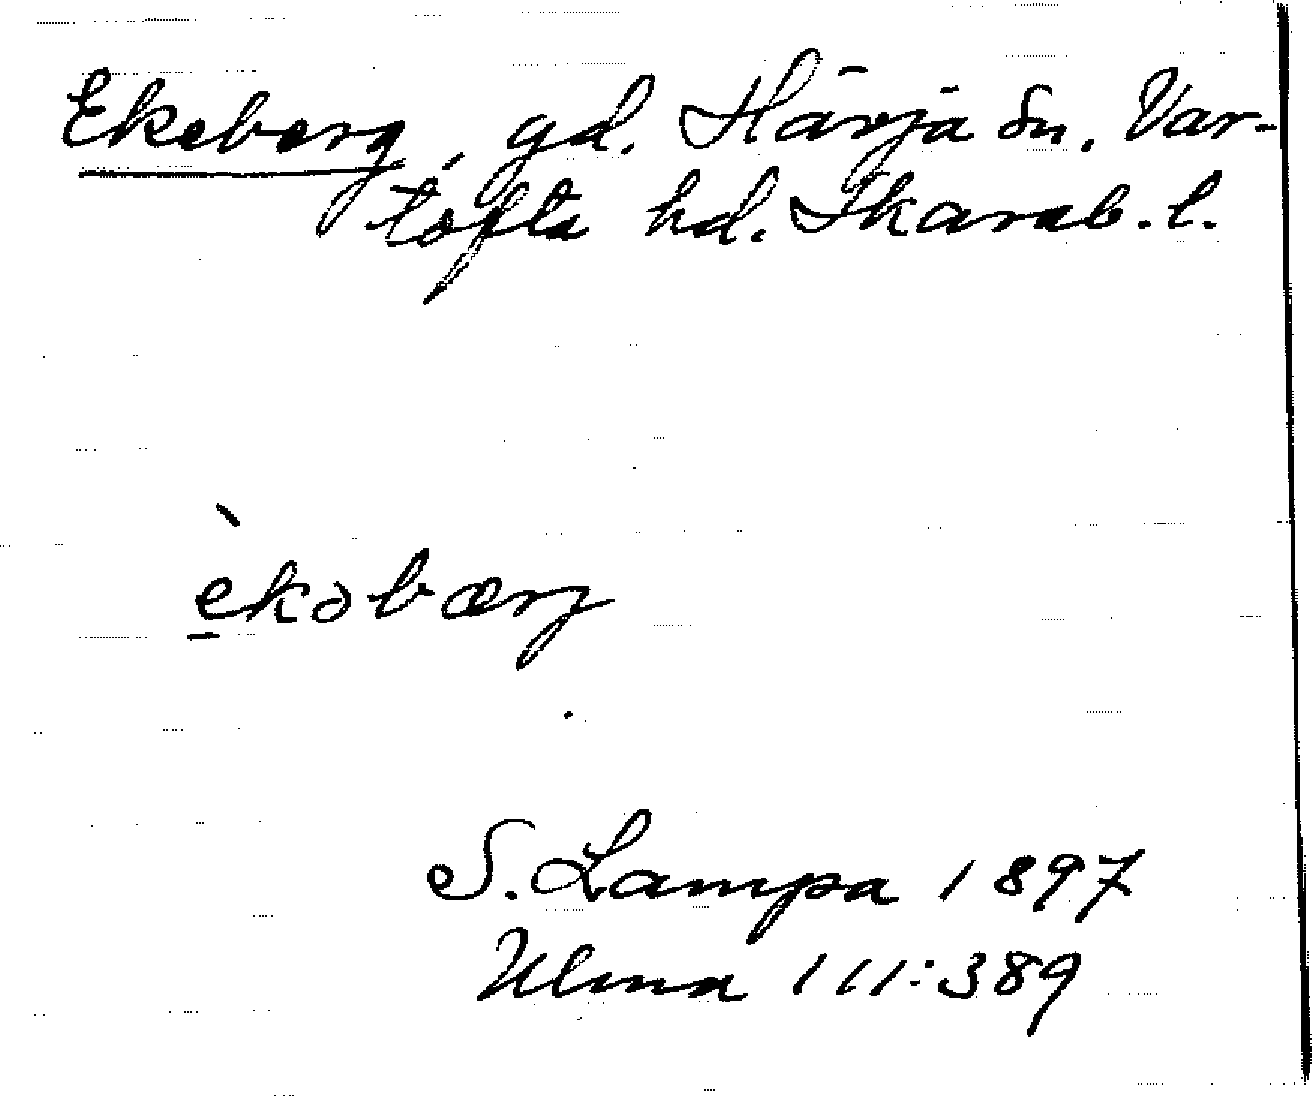 Ekeberg, gd. Härja sn. Var-
tofta hd. Skarab. l.
èkəbærj
S. Lampa 1897
Ulma 111:389